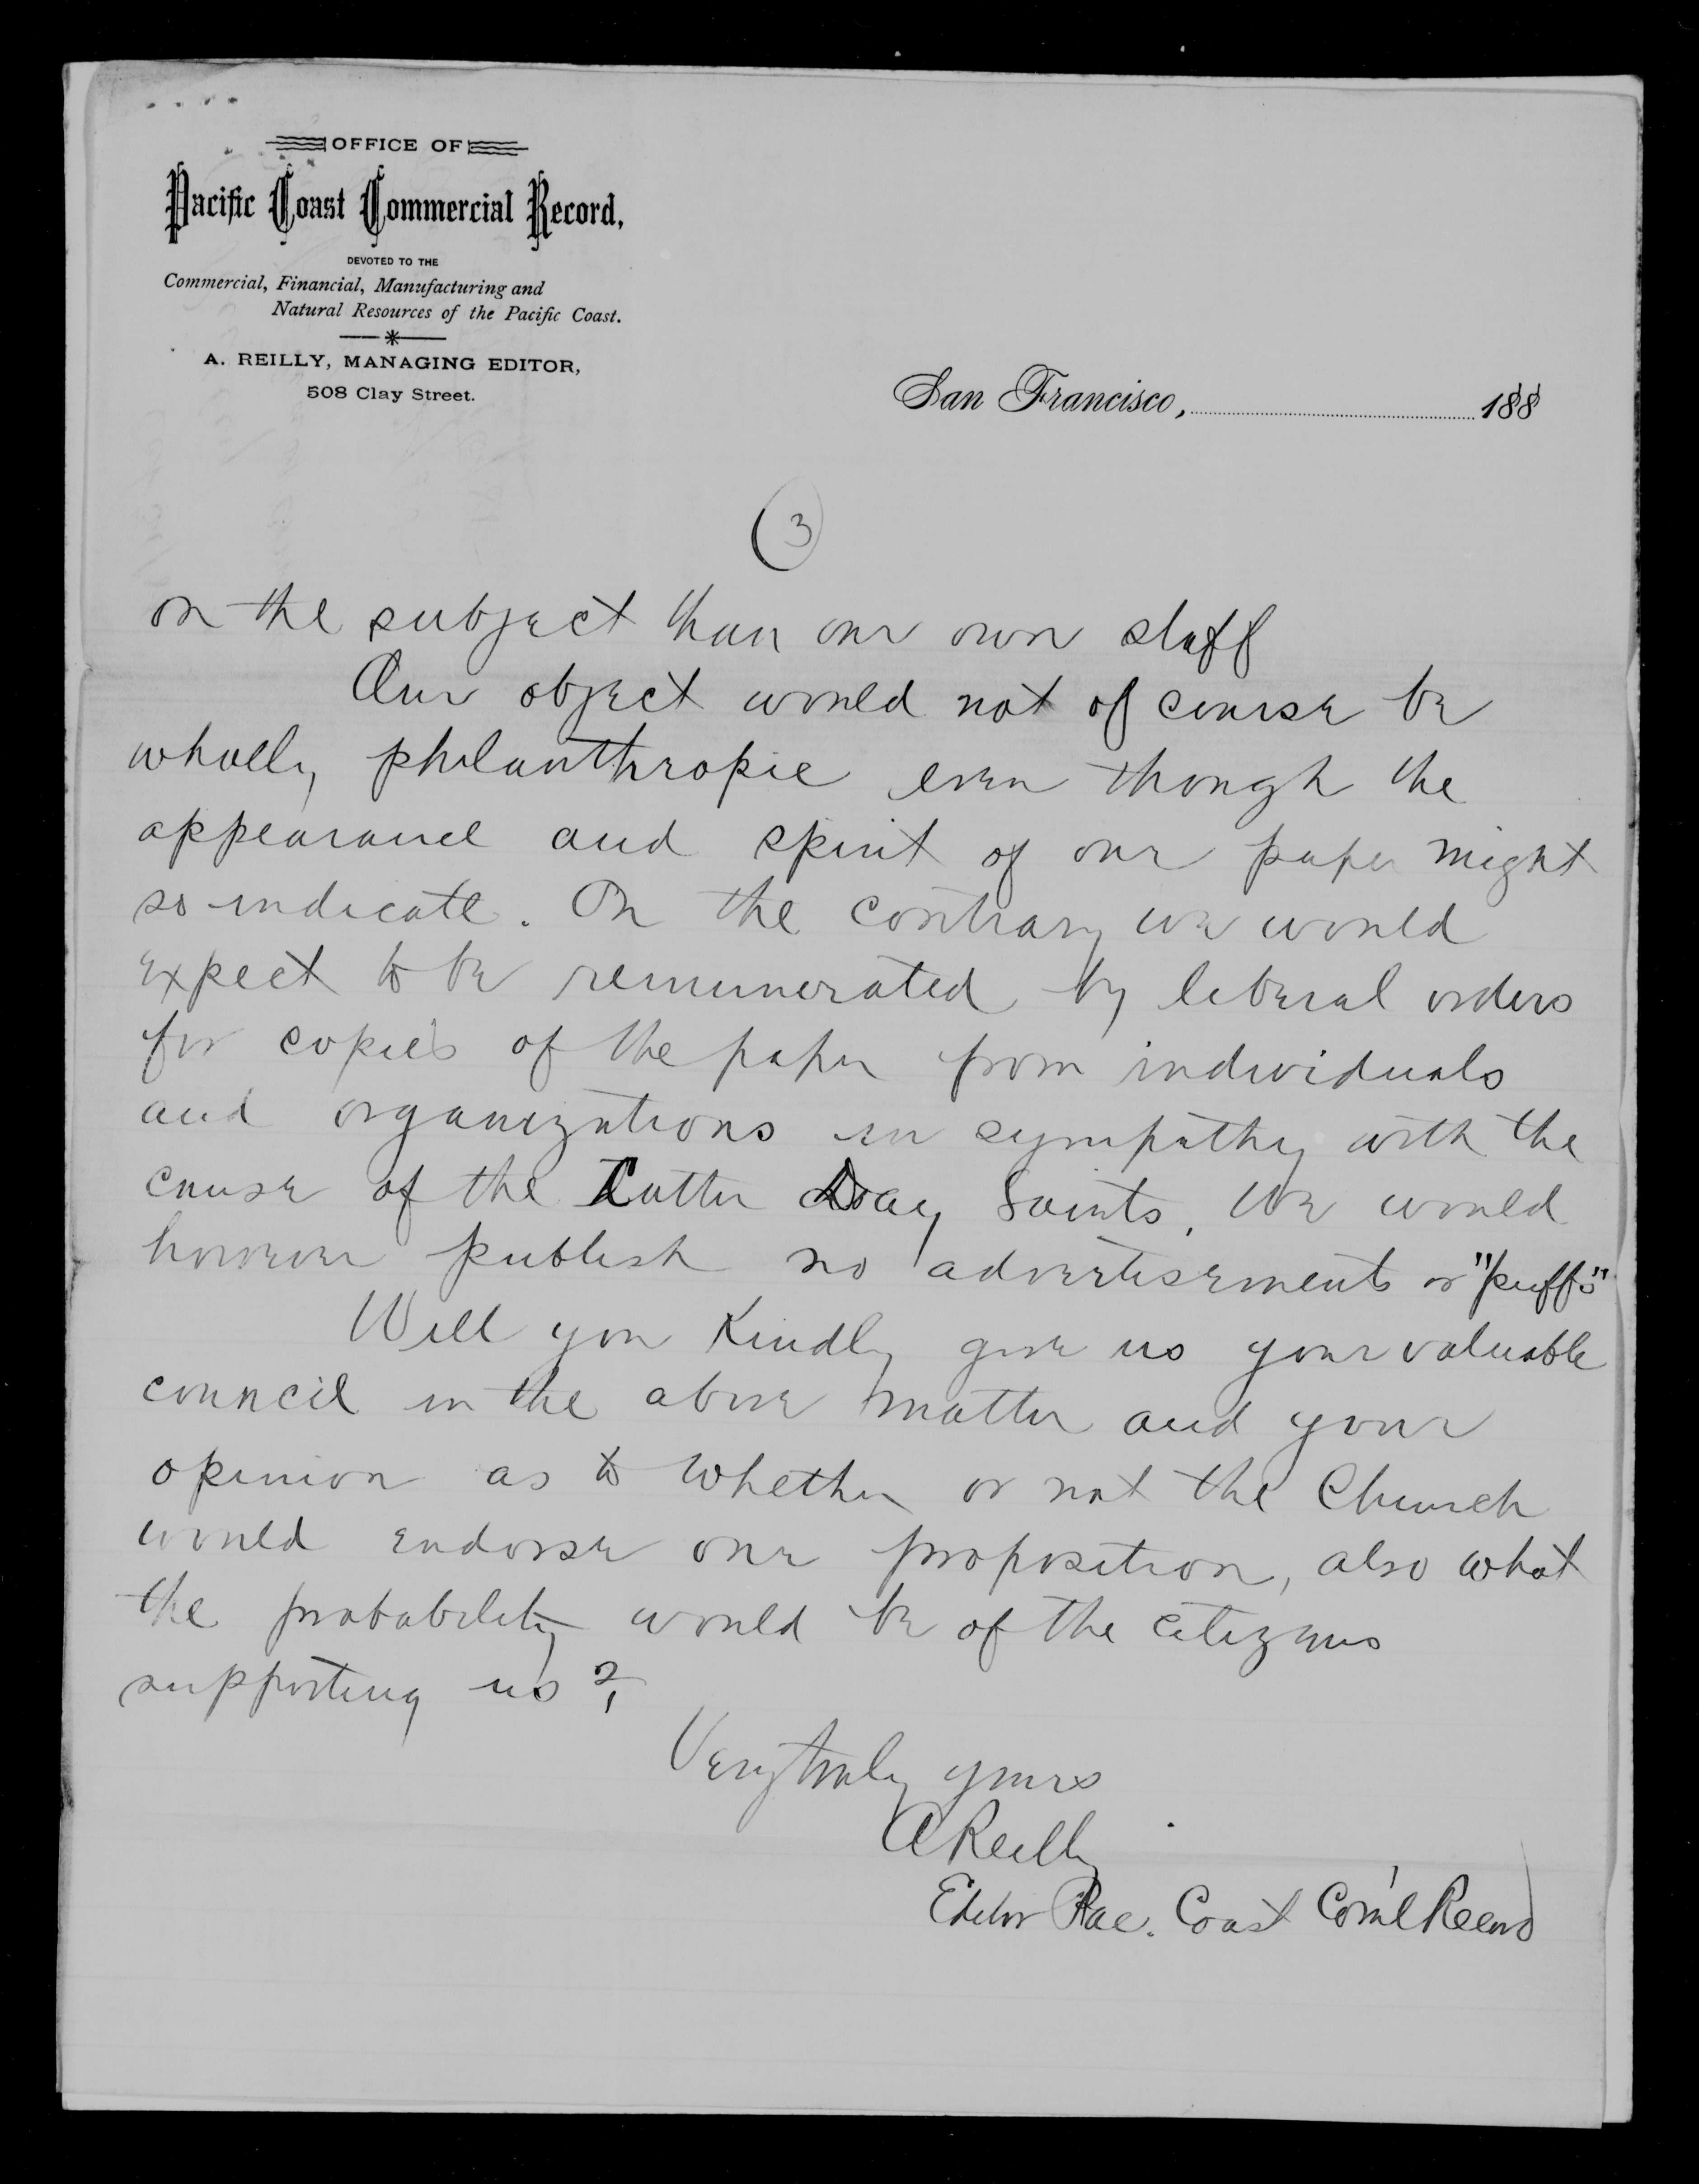 OFFICE OF
Pacific Coast Commercial Record,
DEVOTED TO THE
Commercial, Financial, Manufacturing and
Natural Resources of the Pacific Coast.
A. REILLY, MANAGING EDITOR,
508 Clay Street.
San Francisco, 188
3
on the subject than our own staff
Our object would not of course be
wholly philanthropic even though the
appearance and spirit of our paper might
so indicate. On the contrary we would
expect to be remunerated by liberal orders
for copies of the paper from individuals
and organizations in sympathy with the
cause of the Latter Day Saints. We would
however publish no advertisements or "puffs"
Will you Kindly give us your valuable
council in the above matter and your
opinion as to whether or not the Church
would endorse our proposition, also what
the probability would be of the citizens
supporting us?
Very truly yours
A Reilly
Editor Pac. Coast Com'l Record